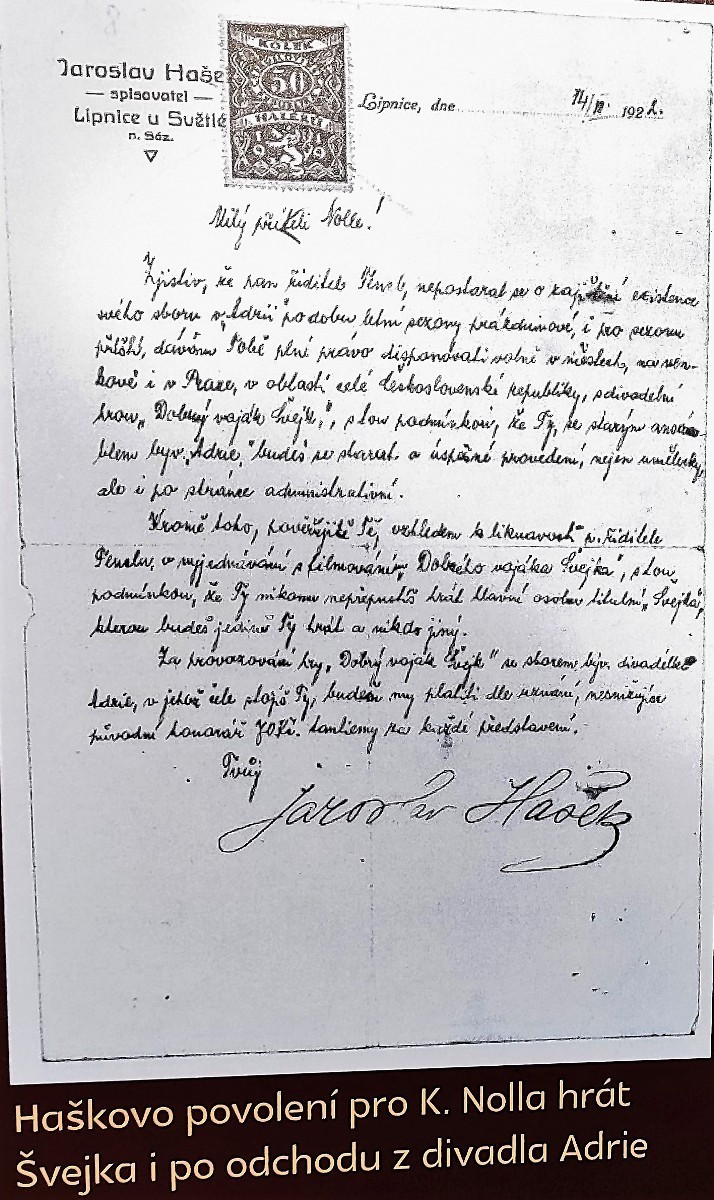 Jaroslav Haše
— spisovatel —
Lipnice u Světlé
n. Sáz.
KOLEK
50
HALÉŘŮ
1919
Lipnice, dne 14/ 1922.
Milý příteli Nolle!
Zjistiv, že pan ředitel Fencl, nepostaral se o zajištění existence
svého sboru v „Adrii" po dobu letní sezony prázdninové, i pro sezonu
příští, dávám Tobě plné právo disponovati volně v městech, na ven-
kově i v Praze, v oblasti celé Československé republiky, s divadelní
hrou „Dobrý voják Švejk", s tou podmínkou, že Ty, se starým ansám-
blem býv. „Adrie," budeš se starat o úspěšné provedení, nejen umělecky,
ale i po stránce administrativní.
Kromě toho, pověřuji Tě, vzhledem k liknavosti p. ředitele
Fencla, v vyjednávání s filmováním „Dobrého vojáka Švejka", s tou
podmínkou, že Ty nikomu nepřepustíš hrát hlavní osobu titulní „Švejka",
kterou budeš jedině Ty hrát a nikdo jiný.
Za provozování hry „Dobrý voják Švejk" se sborem býv. divadélka
Adrie, v jehož čele stojíš Ty, budeš my platiti dle uznání, nesnižujíce
původní honorář 70 Kč. tantiemy za každé představení.
Tvůj
Jaroslav Hašek
Haškovo povolení pro K. Nolla hrát
Švejka i po odchodu z divadla Adrie